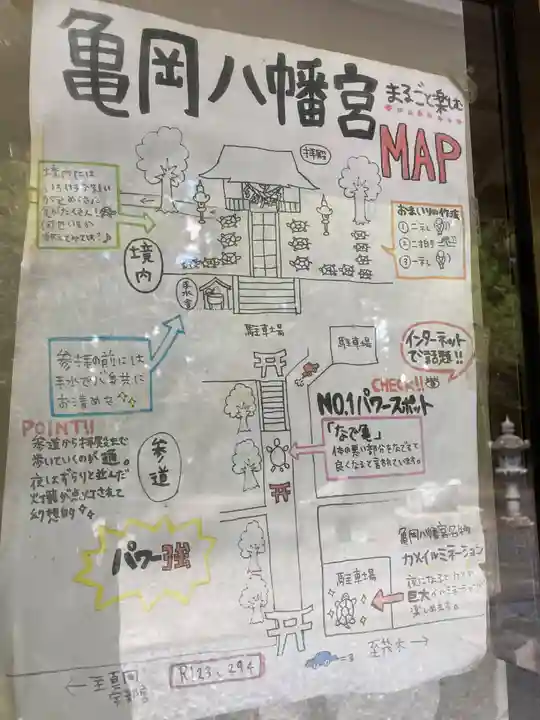 亀岡八幡宮
まるごと楽しむ
MAP
拝殿
境内には
おまいりの作法
①二礼
②二拍手
③一礼
境内
手水舎
駐車場
駐車場
インターネット
で話題!!
参拝の前には
手水で心身共に
お清めを
CHECK!!
NO.1パワースポット
「なで亀」
体の悪い部分をなでて
良くなると言われています。
POINT!!
参道から拝殿まで
歩いていくのが
夜はずらりと並んだ
灯籠が点灯されて
幻想的
参道
パワー強
亀岡八幡宮名物
カメイルミネーション
駐車場
夜になると
巨大イルミネーション
楽しめます。
←至真岡
宇都宮
R123、294
至茂木→